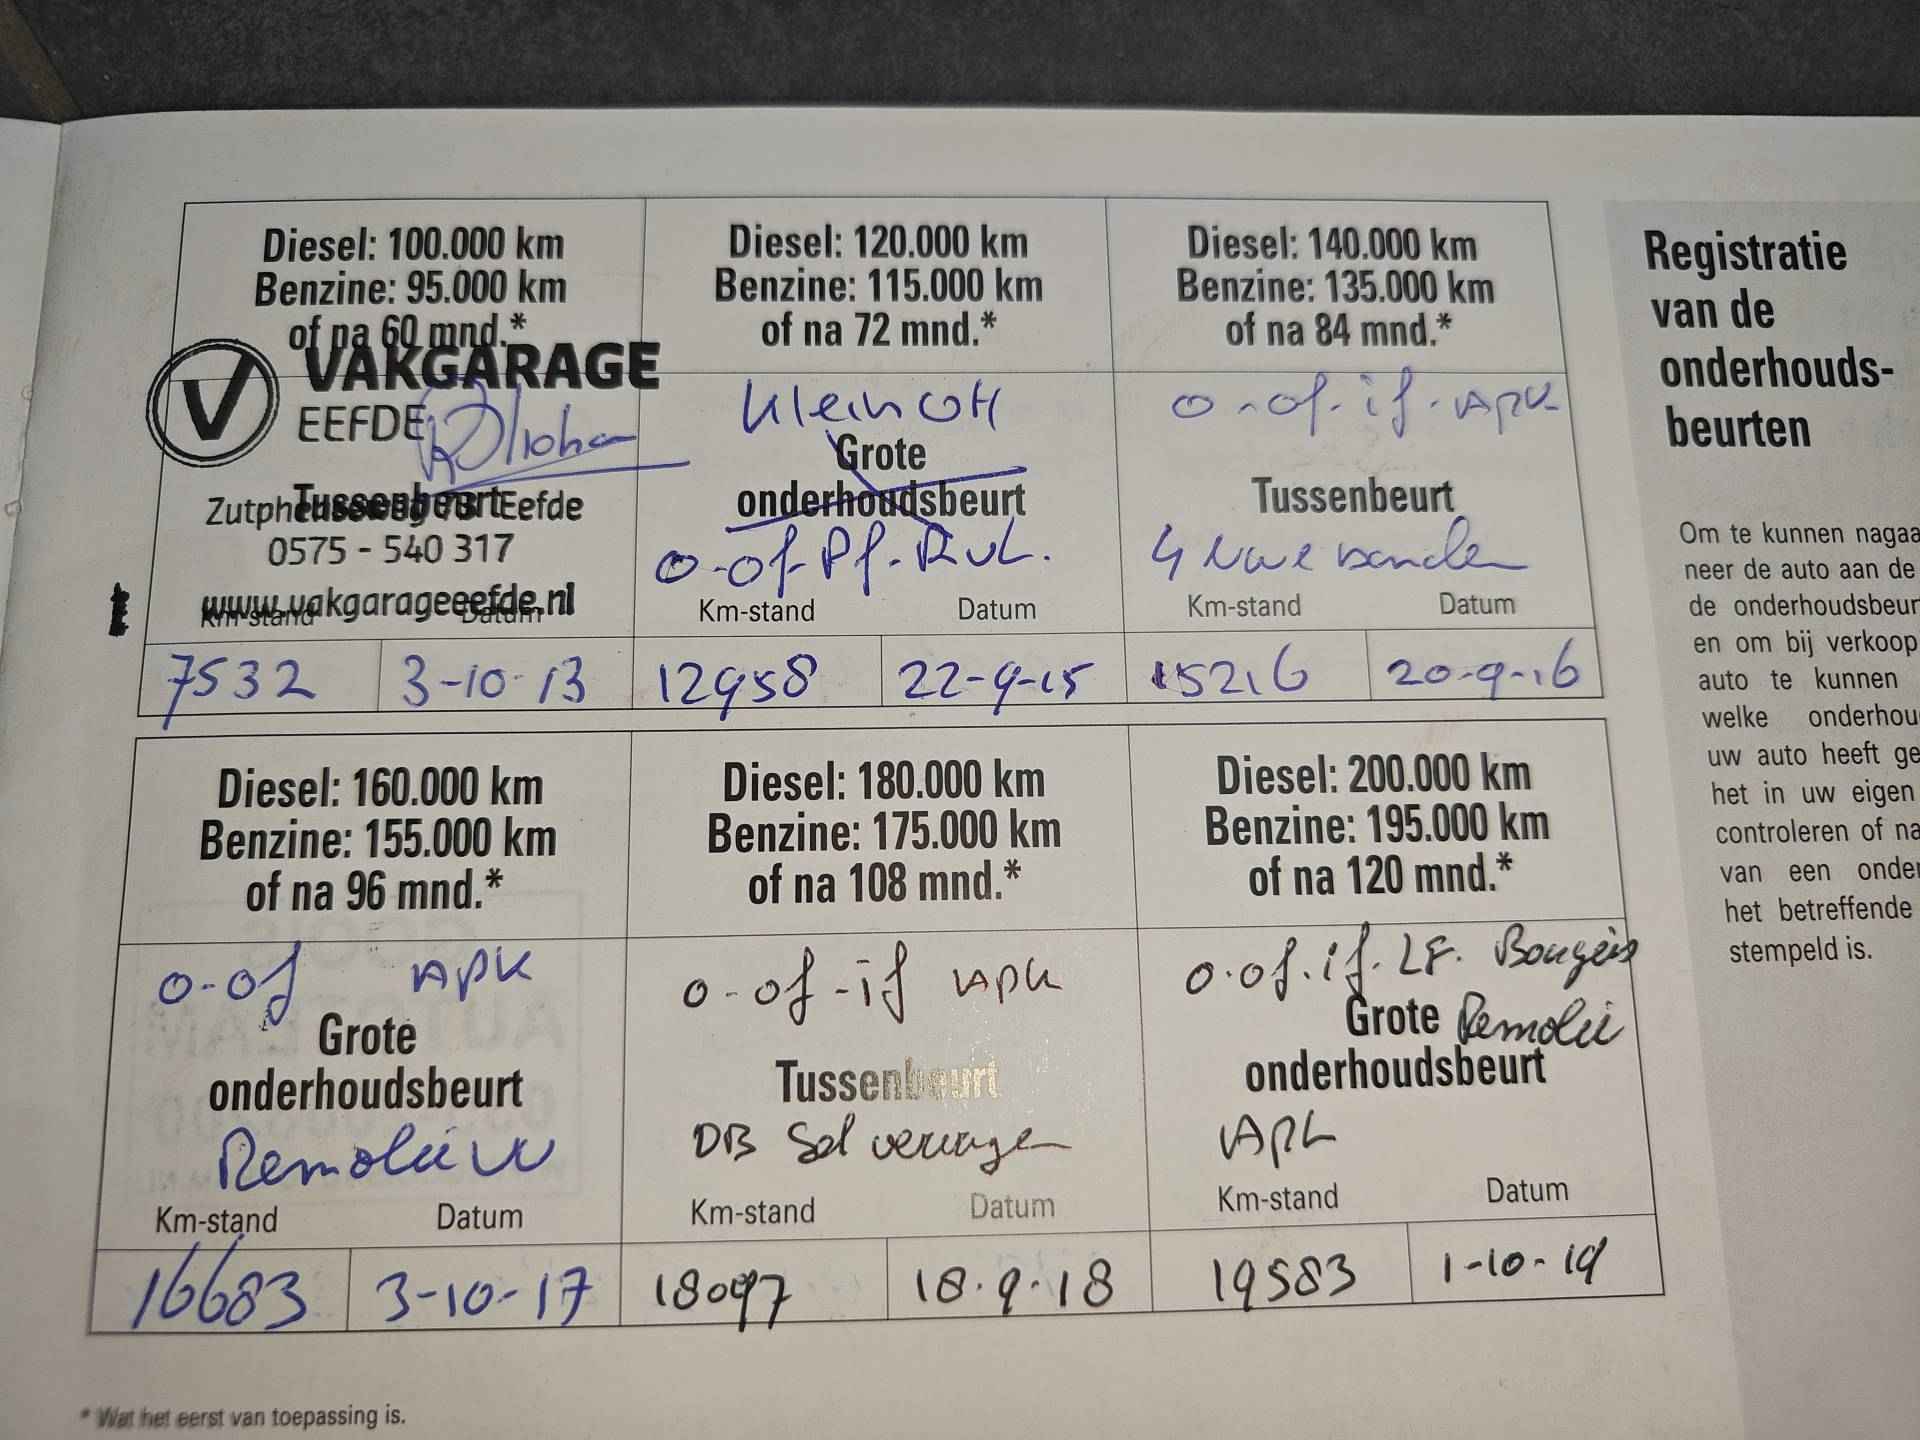 Diesel: 100.000 km
Benzine: 95.000 km
of na 60 mnd.*
VAKGARAGE
EEFDE
Tussenbeurt
Eefde
0575 - 540 317
www.vakgarageeefde.nl
Km-stand Datum
7532 3-10-13
Diesel: 120.000 km
Benzine: 115.000 km
of na 72 mnd.*
Klein
Grote
onderhoudsbeurt
o-of-Pf-Rvl.
Km-stand Datum
12958 22-9-15
Diesel: 140.000 km
Benzine: 135.000 km
of na 84 mnd.*
o-of-if-APK
Tussenbeurt
4 banden
Km-stand Datum
15216 20-9-16
Diesel: 160.000 km
Benzine: 155.000 km
of na 96 mnd.*
o-of APK
Grote
onderhoudsbeurt
Remolie
Km-stand Datum
16683 3-10-17
Diesel: 180.000 km
Benzine: 175.000 km
of na 108 mnd.*
o-of-if APK
Tussenbeurt
Km-stand Datum
18097 18-9-18
Diesel: 200.000 km
Benzine: 195.000 km
of na 120 mnd.*
o.of.if.LF. Bougies
Grote Remolie
onderhoudsbeurt
APK
Km-stand Datum
19583 1-10-19
* Wat het eerst van toepassing is.
Registratie
van de
onderhouds-
beurten
Om te kunnen nagaa
neer de auto aan de
de onderhoudsbeur
en om bij verkoop
auto te kunnen
welke onderhou
uw auto heeft ge
het in uw eigen
controleren of na
van een onder
het betreffende
stempeld is.